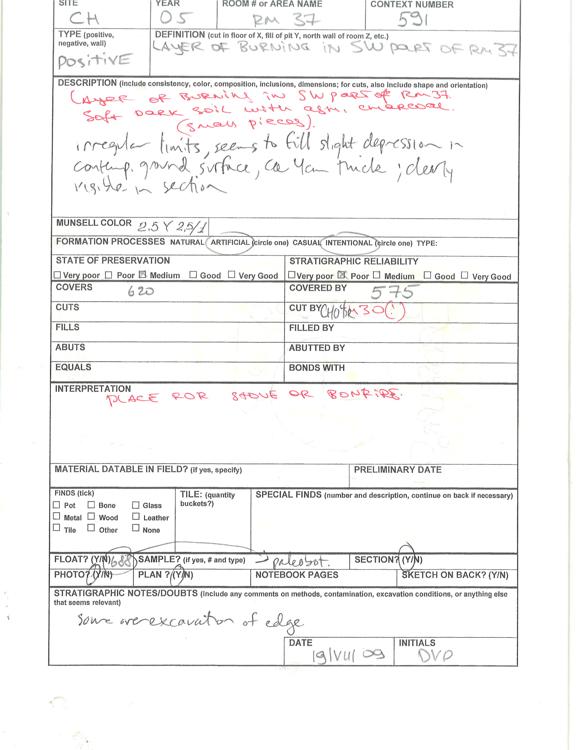 SITE YEAR ROOM # or AREA NAME CONTEXT NUMBER
CH 05 RM 37 591
TYPE (positive, negative, wall) DEFINITION (cut in floor of X, fill of pit Y, north wall of room Z, etc.)
POSITIVE LAYER OF BURNING IN SW PART OF RM 37
DESCRIPTION (include consistency, color, composition, inclusions, dimensions; for cuts, also include shape and orientation)
LAYER OF BURNING IN SW PART OF RM 37.
SOFT DARK SOIL WITH ASH, CHARCOAL
(SMALL PIECES).
irregular limits, seems to fill slight depression in
contemp. ground surface, ca thick; clearly
visible in section
MUNSELL COLOR 2.5 Y 2.5/1
FORMATION PROCESSES NATURAL ARTIFICIAL (circle one) CASUAL INTENTIONAL (circle one) TYPE:
STATE OF PRESERVATION STRATIGRAPHIC RELIABILITY
Very poor Poor Medium Good Very Good Very poor Poor Medium Good Very Good
COVERS 620 COVERED BY 575
CUTS CUT BY
FILLS FILLED BY
ABUTS ABUTTED BY
EQUALS BONDS WITH
INTERPRETATION
PLACE FOR STOVE OR BONFIRE.
MATERIAL DATABLE IN FIELD? (if yes, specify) PRELIMINARY DATE
FINDS (tick) TILE: (quantity buckets?) SPECIAL FINDS (number and description, continue on back if necessary)
Pot Bone Glass
Metal Wood Leather
Tile Other None
FLOAT? (Y/N) 688 SAMPLE? (if yes, # and type) → paleobot. SECTION? (Y/N)
PHOTO? (Y/N) PLAN ? (Y/N) NOTEBOOK PAGES SKETCH ON BACK? (Y/N)
STRATIGRAPHIC NOTES/DOUBTS (Include any comments on methods, contamination, excavation conditions, or anything else
that seems relevant)
Some overexcavation of edge
DATE INITIALS
19/VII/09 DVD